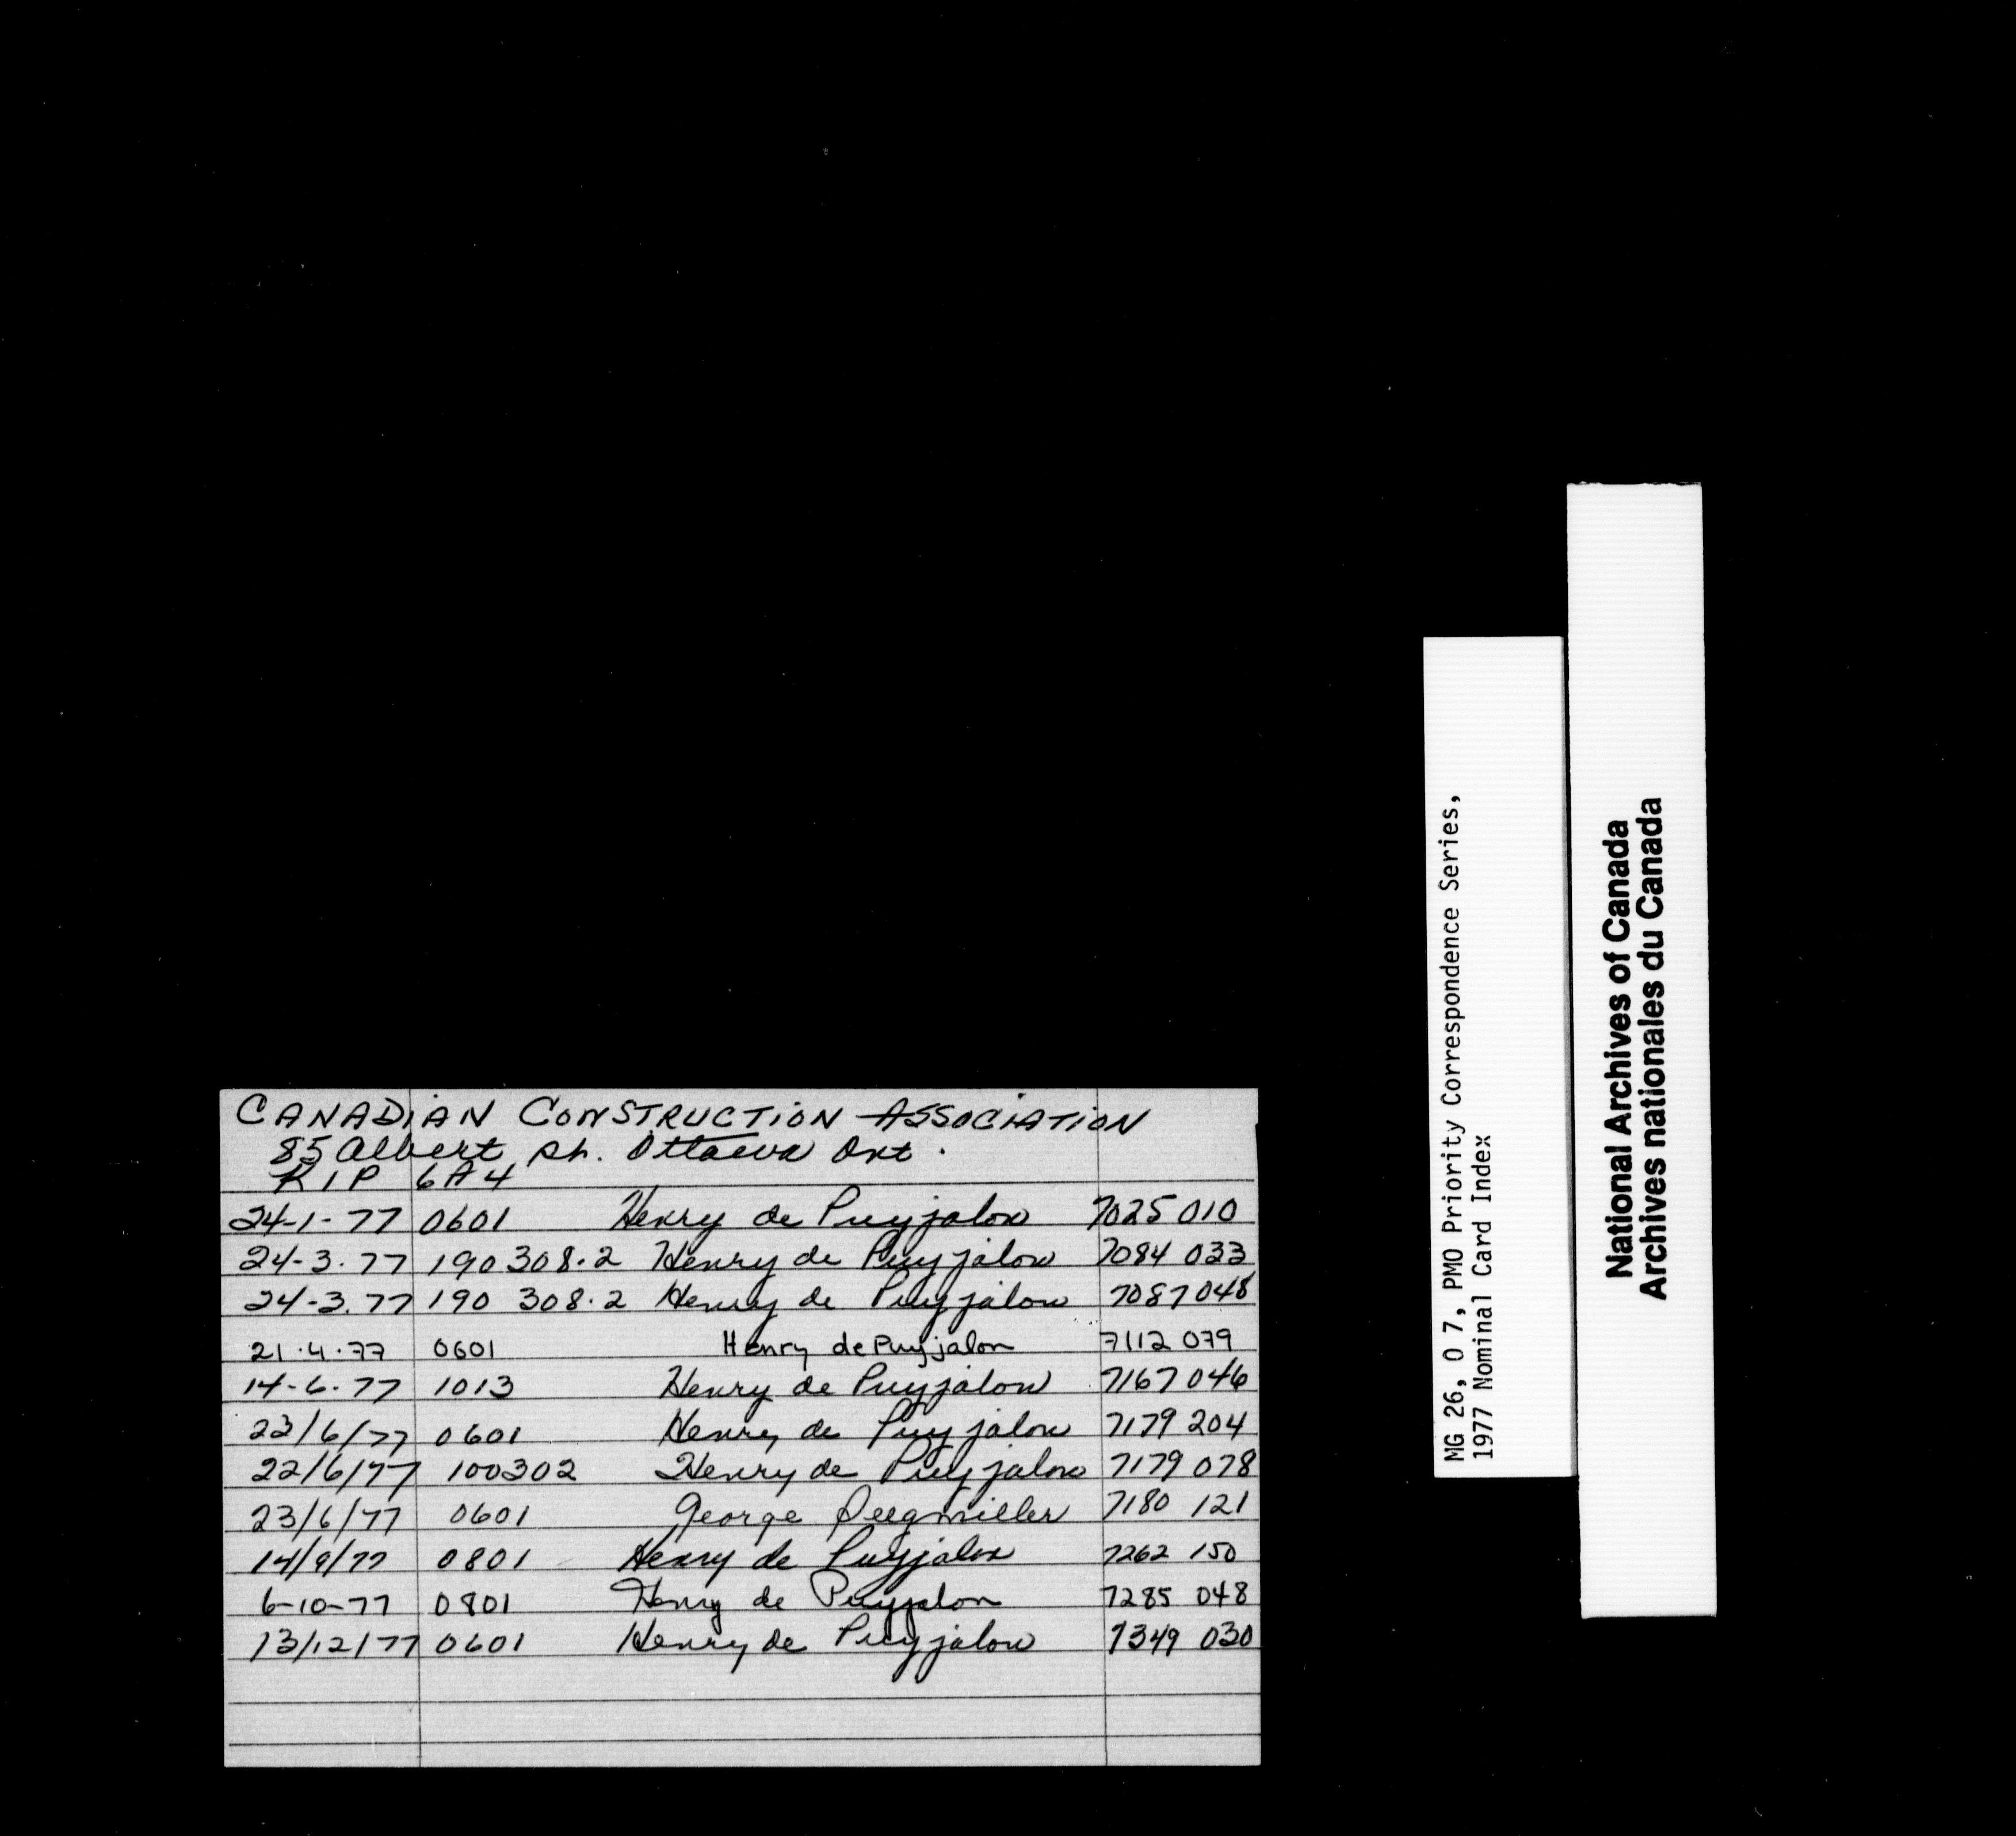 CANADIAN CONSTRUCTION ASSOCIATION
85 Albert St. Ottawa Ont.
K1P 6A4
24-1-77 0601 Henry de Puyjalon 7025 010
24-3.77 190 308.2 Henry de Puyjalon 7084 033
24-3.77 190 308.2 Henry de Puyjalon 7087 048
21.4.77 0601 Henry de Puyjalon 7112 079
14-6-77 1013 Henry de Puyjalon 7167 046
23/6/77 0601 Henry de Puyjalon 7179 204
22/6/77 100302 Henry de Puyjalon 7179 078
23/6/77 0601 George 7180 121
14/9/77 0801 Henry de Puyjalon 7262 150
6-10-77 0801 Henry de Puyjalon 7285 048
13/12/77 0601 Henry de Puyjalon 7349 030
MG 26, O 7, PMO Priority Correspondence Series,
1977 Nominal Card Index
National Archives of Canada
Archives nationales du Canada